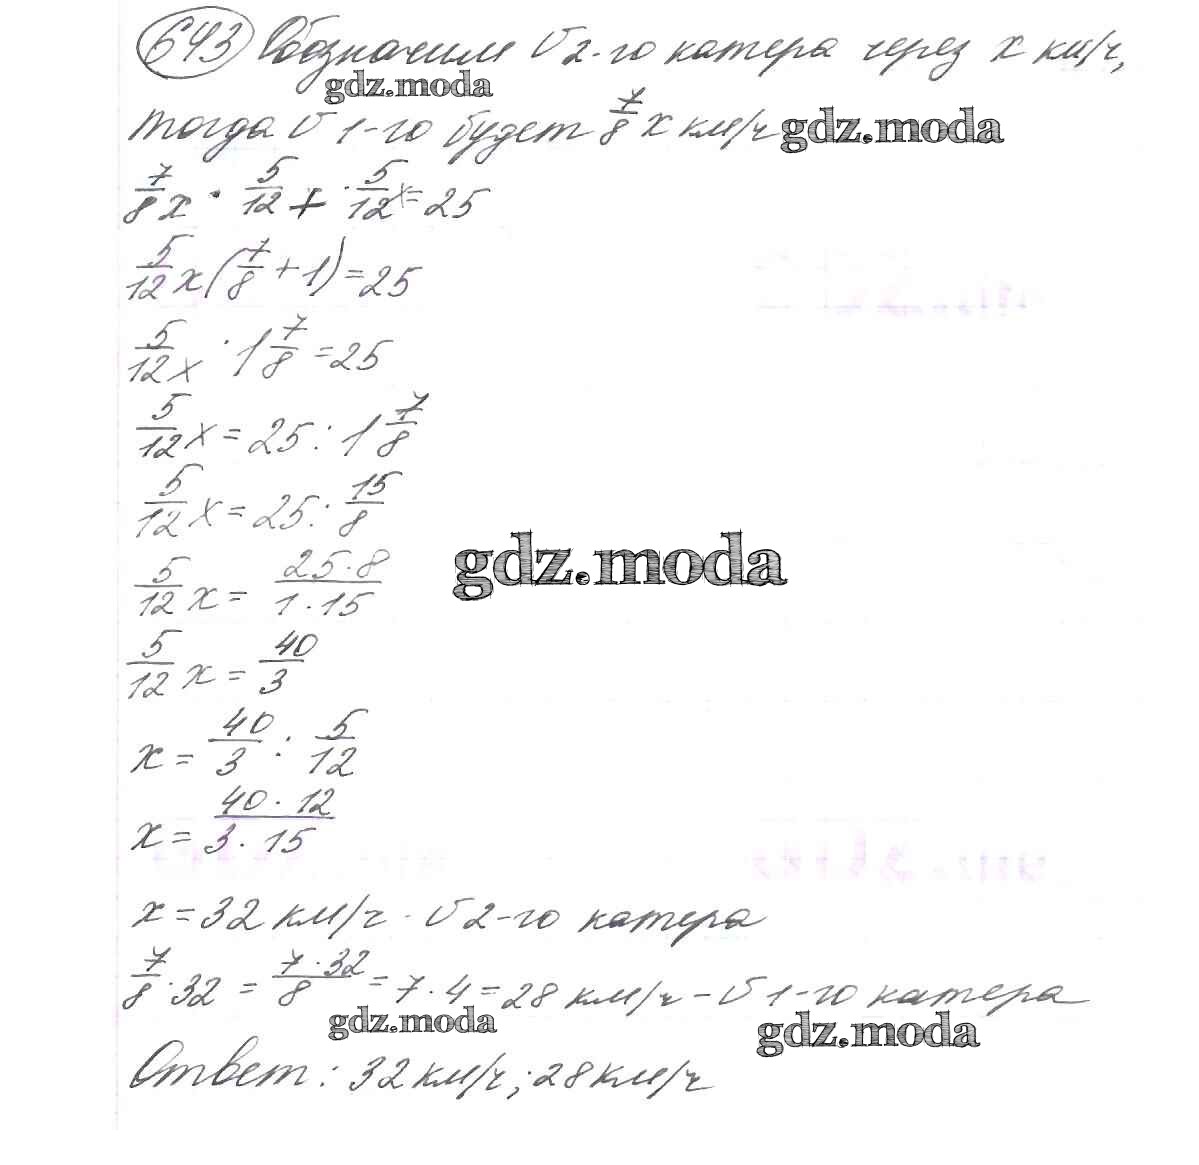 643 Обозначим V 2-го катера через x км/ч,
gdz.moda
тогда V 1-го будет 7/8 x км/ч gdz.moda
7/8 x · 5/12 + · 5/12 x = 25
5/12 x (7/8 + 1) = 25
5/12 x · 1 7/8 = 25
5/12 x = 25 : 1 7/8
5/12 x = 25 : 15/8
gdz.moda
5/12 x = 25·8/1·15
5/12 x = 40/3
x = 40/3 : 5/12
x = 40 · 12/3 · 15
x = 32 км/ч - V 2-го катера
7/8 · 32 = 7·32/8 = 7·4 = 28 км/ч – V 1-го катера
gdz.moda gdz.moda
Ответ: 32 км/ч; 28 км/ч